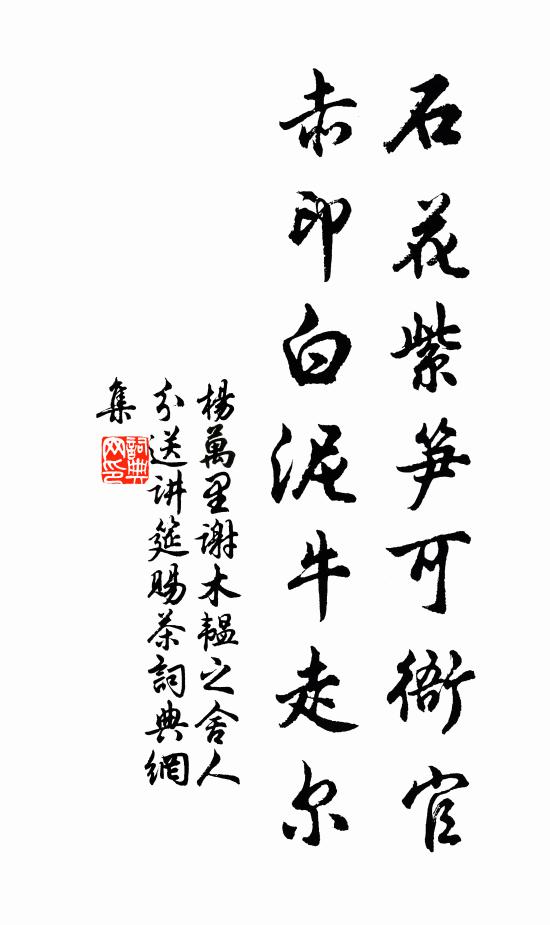 石花紫笋可衙官
赤印白泥牛走尔
楊萬里谢木韫之舍人
分送讲筵赐茶詞典網
集
詞典網印